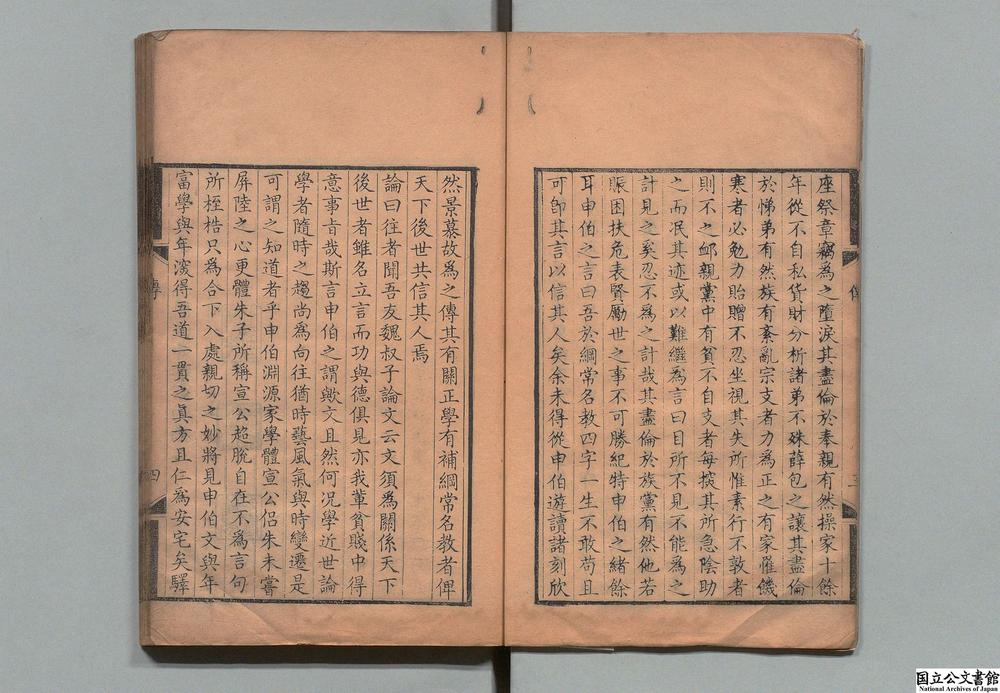 座祭章竊為之墮淚其盡倫於奉親有然操家十餘
年從不自私貨財分析諸弟不殊薛包之讓其盡倫
於悌弟有然族有紊亂宗支者力為正之有家惟饑
寒者必勉力貽贈不忍坐視其失所惟素行不敦者
則不之卹親黨中有貧不自支者每揆其所急陰助
之而泯其迹或以難繼為言曰目所不見不能為之
計見之奚忍不為之計哉其盡倫於族黨有然他若
賑困扶危表賢勵世之事不可勝紀特申伯之緒餘
耳申伯之言曰吾於綱常名教四字一生不敢苟且
可卽其言以信其人矣余未得從申伯遊讀諸刻欣
傳
三
然景慕故爲之傳其有關正學有補綱常名教者俾
天下後世共信其人焉
論曰往者聞吾友魏叔子論文云文須爲關係天下
後世者雖名立言而功與德俱見亦我軰貧賤中得
意事旨哉斯言申伯之謂歟文且然何况學近世論
學者隨時之趨尚爲向往猶時藝風氣與時變遷是
可謂之知道者乎申伯淵源家學體宣公侣朱未嘗
屏陸之心更體朱子所稱宣公超脫自在不爲言句
所桎梏只爲合下入處親切之妙將見申伯文與年
富學與年濬得吾道一貫之真方且仁爲安宅矣驛
傳
四
国立公文書館
National Archives of Japan